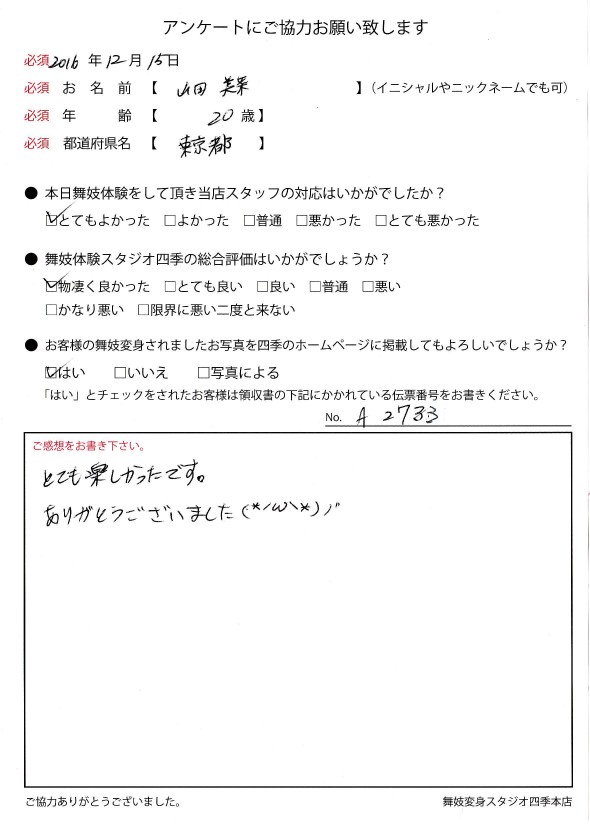 アンケートにご協力お願い致します
必須 2016 年 12 月 15 日
必須 お 名 前 【 山田 美菜 】(イニシャルやニックネームでも可)
必須 年 齢 【 20 歳】
必須 都道府県名 【 東京都 】
● 本日舞妓体験をして頂き当店スタッフの対応はいかがでしたか?
☑とてもよかった □よかった □普通 □悪かった □とても悪かった
● 舞妓体験スタジオ四季の総合評価はいかがでしょうか?
☑物凄く良かった □とても良い □良い □普通 □悪い
□かなり悪い □限界に悪い二度と来ない
● お客様の舞妓変身されましたお写真を四季のホームページに掲載してもよろしいでしょうか?
☑はい □いいえ □写真による
「はい」とチェックをされたお客様は領収書の下記にかかれている伝票番号をお書きください。
No. A 2733
ご感想をお書き下さい。
とても楽しかったです。
ありがとうございました(*ノω\*)ノ"
ご協力ありがとうございました。 舞妓変身スタジオ四季本店